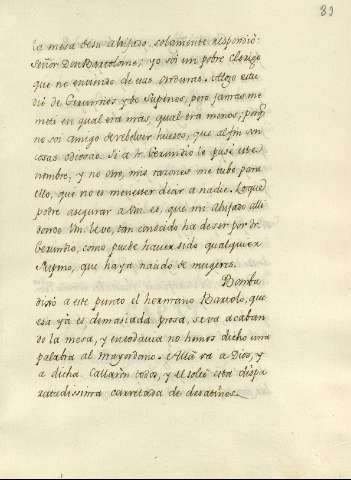 83
la mesa de su ahijado, solamente respondió:
Señor Don Bartolomé, yo soi un pobre Clerigo
que no entiendo de esas
dié de Gerundios y de Supinos, pero jamas me
meti en qual era mas, qual era menos, porq.e
no soi amigo de rebolver huesos, que al fin son
cosas odiosas. Si a fr. Gerundio le puse este
nombre, y no otro, mis razones me tube para
ello, que no es menester decir a nadie. Lo que
podre asegurar a Vm es, que mi ahijado
Vm leve, tan conocido ha de ser por fr.
Gerundio, como puede haver sido qualquiera
Supino, que haya nacido de mugeres.
Bamba
dixo a este punto el hermano Bartolo, que
esa ya es demasiada prosa, se va acaban
do la mesa, y entodavia no hemos dicho una
palabra al mayordomo. Allá va a Dios, y
a dicha. Callaron todos, y el soltó esta dispa
ratadissima carretada de desatinos.